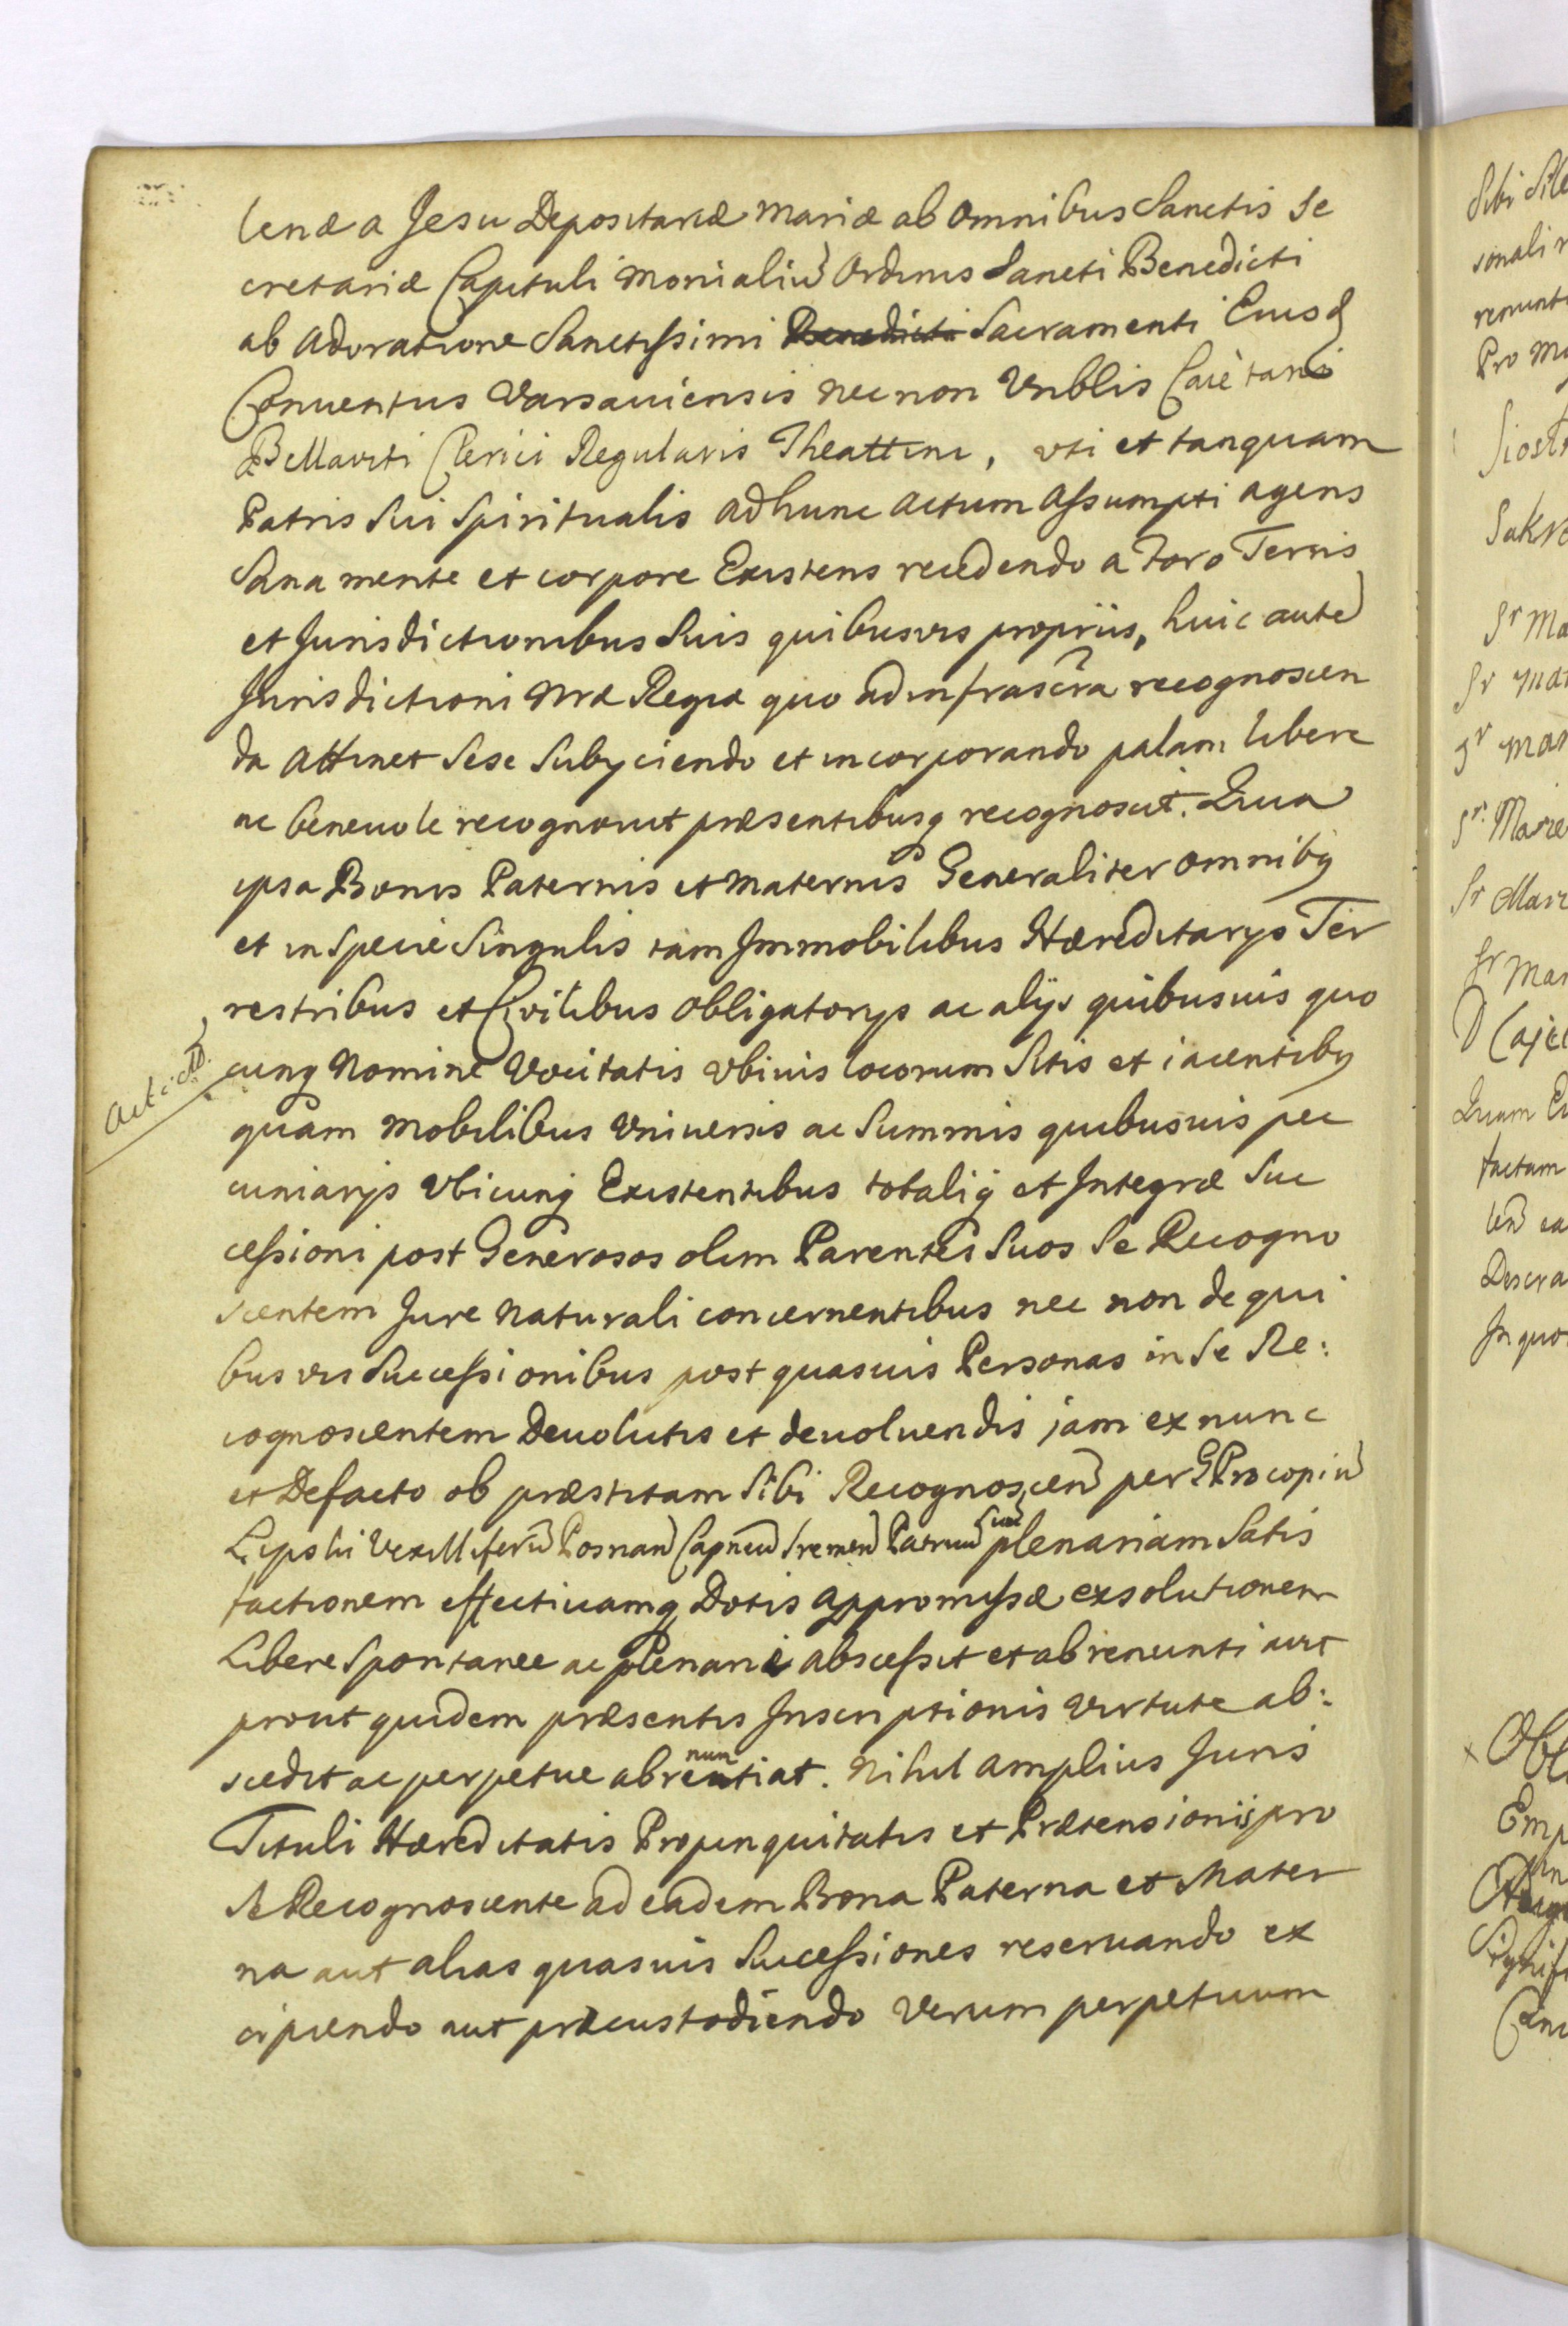 lenæ a Jesu Depositariæ Mariæ ab Omnibus Sanctis Se
cretariæ Capituli Monialiu Ordinis Sancti Benedicti
ab Adoratione Sanctissimi Benedicti Sacramenti Eiusd
Conventus Varsaviensis nec non Vnblis Caietani
Bellaviti Clerici Regularis Theattini, vti et tanquam
Patris Sui Spiritualis ad hunc actum assumpti agens
Sana mente et corpore Existens recedendo a Foro Terris
et Jurisdictionibus Suis quibusvis propriis, huic aute
Jurisdictioni Nræ Regiæ quo ad infrascra recognoscen
da Attinet Sese Subyciendo et incorporando palam libere
ac benevole recognovit præsentibusq recognoscit. Quia
ipsa Bonis Paternis et Maternis Generaliter omnibq
et in Specie Singulis tam Immobilibus Hæreditarys Ter
restribus et Civilibus obligatorys ac alijs quibusuis quo
cunq Nomine Vocitatis vbiuis locorum Sitis et iacentibq
quam Mobilibus Vniuersis ac Summis quibusuis pec
cuniarijs Vbicunq Existentibus totaliq et Integræ Suc
cessioni post Generosos olim Parentes Suos Se Recogno
scentem Jure Naturali concernentibus nec non de qui
busvis Successionibus post quasuis Personas in Se Re:
cognoscentem Deuolutis et deuoluendis jam ex nunc
et Defacto ob præstitam Sibi Recognoscen per G Procopiu
Lipski Vexilliferu Posnan Capneu Sremen Patruu Suu plenariam Satis
factionem effectiuamq Dotis appromissæ exsolutionem
Libere Spontanee ac plenarie abscessit et abrenuntiauit
prout quidem præsentis Inscriptionis Virtute ab:
scedit ac perpetue abrenuntiat. Nihil amplius Juris
Tituli Hæreditatis Propinquitatis et Prætensionis pro
Se Recognoscente ad eadem Bona Paterna et Mater
na aut alias quasuis Successiones reseruando ex
cipiendo aut præcustodiendo Verum perpetuum
Sibi Sile
sonali r
renunti
Pro Ma
Siostr
Sakra
Sr Ma
Sr Mar
Sr Mar
Sr: Marie
Sr Mari
Sr Mar
D Cajet
Quam Eu
factam
len ea
Descra
In quo